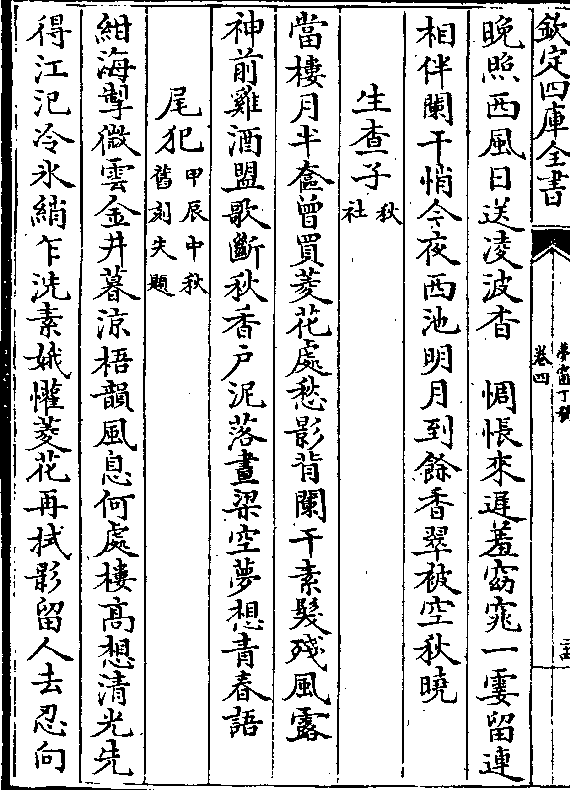 欽定四庫全書
夢窗丁稿
卷四
晚照西風日送凌波杳　惆悵來遲羞窈窕一霎留連
相伴闌干悄今夜西池明月到餘香翠被空秋曉
生查子秋社
當樓月半奩曾買菱花處愁影背闌干素髮殘風露
神前雞酒盟歌斷秋香户泥落畫梁空夢想青春語
尾犯甲辰中秋舊刻失題
紺海掣微雲金井暮涼梧韻風息何處樓高想清光先
得江汜冷氷綃乍洗素娥懽菱花再拭影留人去忍向